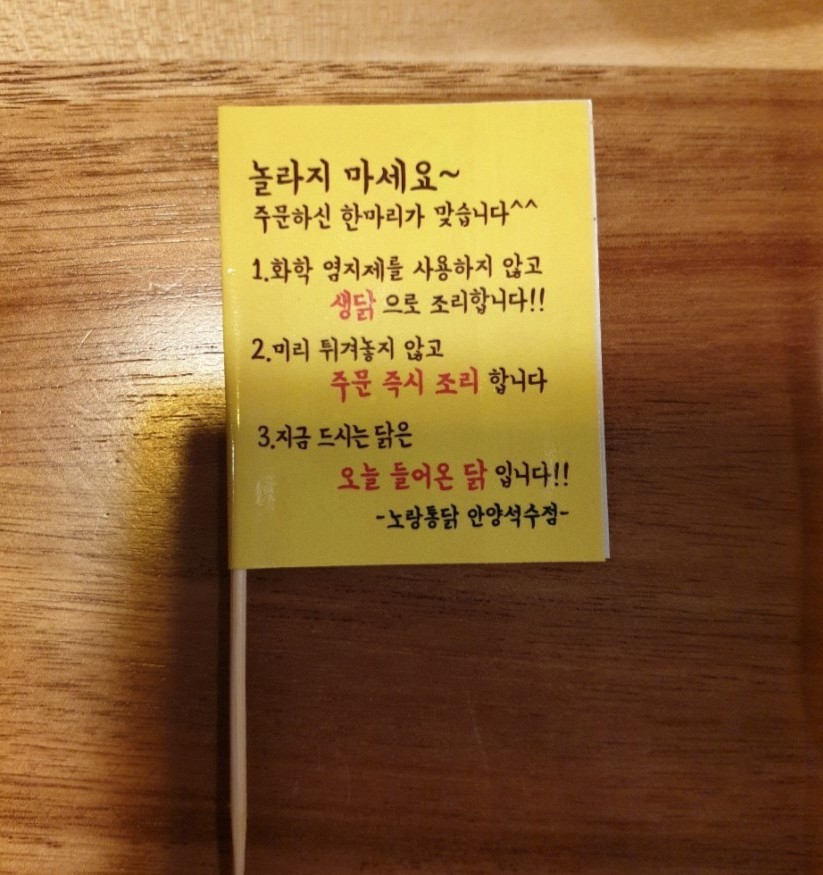 놀라지 마세요~
주문하신 한마리가 맞습니다^^
1.화학 염지제를 사용하지 않고
생닭으로 조리합니다!!
2.미리 튀겨놓지 않고
주문 즉시 조리 합니다
3.지금 드시는 닭은
오늘 들어온 닭 입니다!!
-노랑통닭 안양석수점-